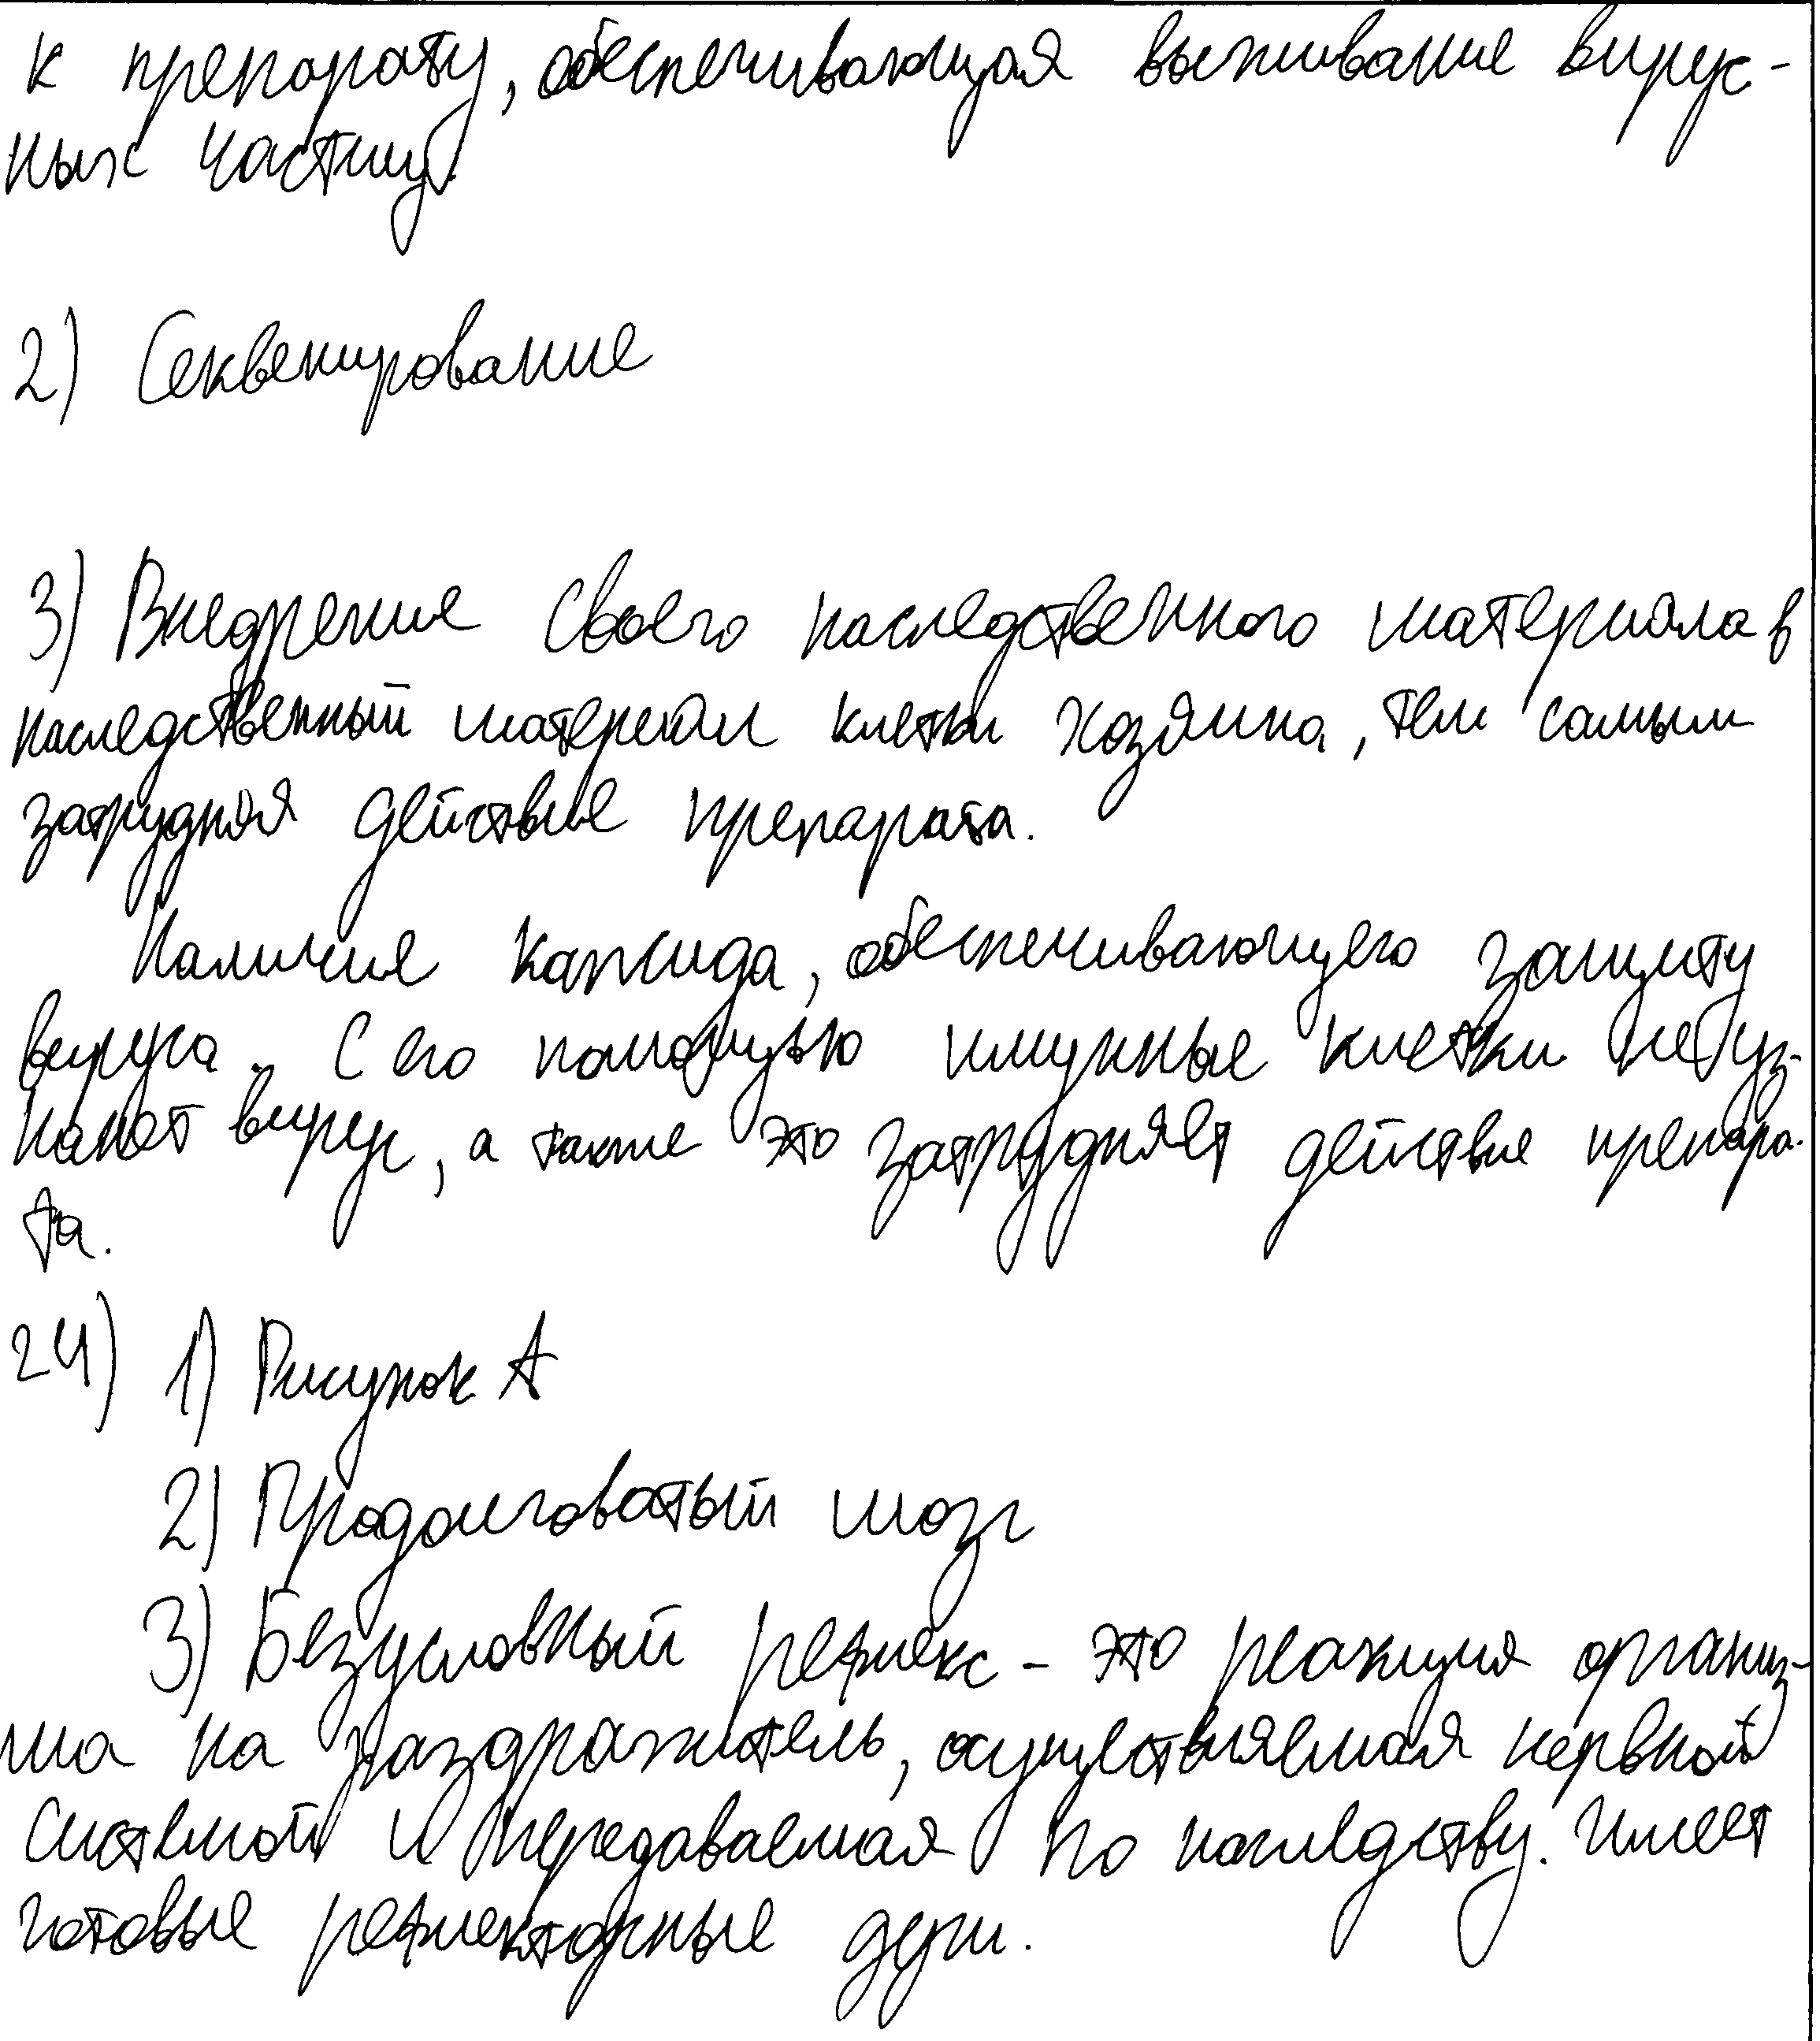 к препарату, обеспечивающая выживание вирус-
ных частиц.
2) Секвенирование
3) Внедрение своего наследственного материала в
наследственный материал клетки хозяина, тем самым
затрудняя действие препарата.
Наличие капсида, обеспечивающего защиту
вируса. С его помощью имунные клетки не уз-
нают вирус, а также это затрудняет действие препара-
та.
24) 1) Рисунок А
2) Продолговатый мозг
3) Безусловный рефлекс - это реакция организ-
ма на раздражитель, осуществляемая нервной
системой и передаваемая по наследству. Имеет
готовые рефлекторные дуги.